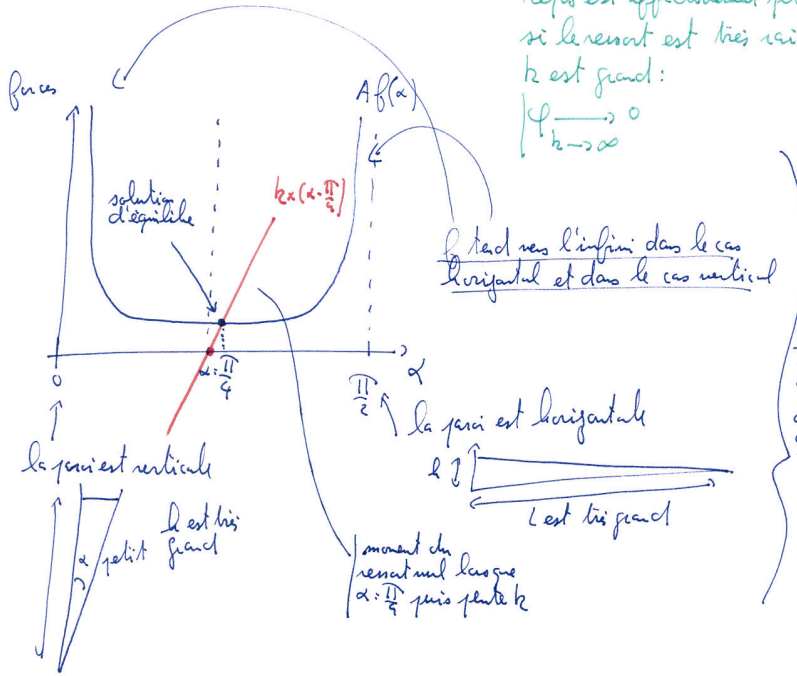 repos est
si le ressort est très rai
k est grand:
φ → 0
k→∞
forces
A f(α)
solution
d'équilibre
k×(α-π/4)
f tend vers l'infini dans le cas
horizontal et dans le cas vertical
0
α=π/4
π/2
α
la paroi est verticale
la paroi est horizontale
h est très
grand
α petit
h
L est très grand
moment du
ressort nul lorsque
α=π/4 puis pente k